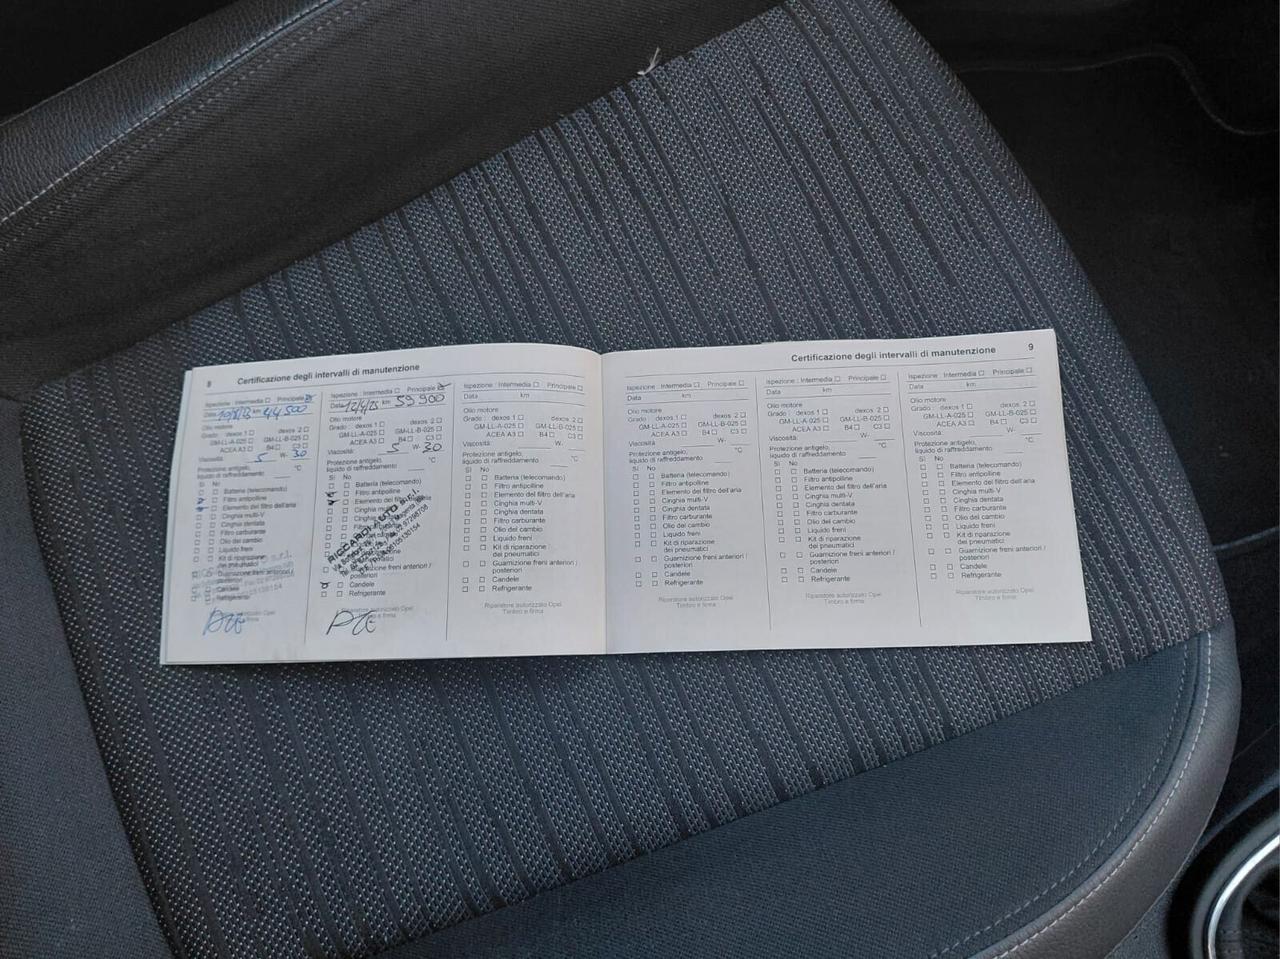 8 Certificazione degli intervalli di manutenzione
Ispezione : Intermedia ☐ Principale
Data km 44 500
Olio motore
Grado : dexos 1 ☐ dexos 2 ☐
GM-LL-A-025 ☐ GM-LL-B-025 ☐
ACEA A3 ☐ B4 ☐ C3 ☐
Viscosità: 5 W- 30
Protezione antigelo,
liquido di raffreddamento °C
Sì No
Batteria (telecomando)
Filtro antipolline
Elemento del filtro dell'aria
Cinghia multi-V
Cinghia dentata
Filtro carburante
Olio del cambio
Liquido freni
Kit di riparazione
dei pneumatici
Guarnizione freni anteriori /
Candele
Refrigerante
Ispezione : Intermedia ☐ Principale
Data 12/4/25 km 59 900
Olio motore
Grado : dexos 1 ☐ dexos 2 ☐
GM-LL-A-025 ☐ GM-LL-B-025 ☐
ACEA A3 ☐ B4 ☐ C3 ☐
Viscosità: 5 W- 30
Protezione antigelo,
liquido di raffreddamento °C
Sì No
Batteria (telecomando)
Filtro antipolline
Elemento del
Cinghia
Cinghia
freni anteriori /
posteriori
Candele
Refrigerante
Riparatore autorizzato Opel
Timbro e firma
Ispezione : Intermedia ☐ Principale ☐
Data km
Olio motore
Grado : dexos 1 ☐ dexos 2 ☐
GM-LL-A-025 ☐ GM-LL-B-025 ☐
ACEA A3 ☐ B4 ☐ C3 ☐
Viscosità: W-
Protezione antigelo,
liquido di raffreddamento °C
Sì No
☐ ☐ Batteria (telecomando)
☐ ☐ Filtro antipolline
☐ ☐ Elemento del filtro dell'aria
☐ ☐ Cinghia multi-V
☐ ☐ Cinghia dentata
☐ ☐ Filtro carburante
☐ ☐ Olio del cambio
☐ ☐ Liquido freni
☐ ☐ Kit di riparazione
dei pneumatici
☐ ☐ Guarnizione freni anteriori /
posteriori
☐ ☐ Candele
☐ ☐ Refrigerante
Riparatore autorizzato Opel
Timbro e firma
Certificazione degli intervalli di manutenzione 9
Ispezione : Intermedia ☐ Principale ☐
Data km
Olio motore
Grado : dexos 1 ☐ dexos 2 ☐
GM-LL-A-025 ☐ GM-LL-B-025 ☐
ACEA A3 ☐ B4 ☐ C3 ☐
Viscosità: W-
Protezione antigelo,
liquido di raffreddamento °C
Sì No
☐ ☐ Batteria (telecomando)
☐ ☐ Filtro antipolline
☐ ☐ Elemento del filtro dell'aria
☐ ☐ Cinghia multi-V
☐ ☐ Cinghia dentata
☐ ☐ Filtro carburante
☐ ☐ Olio del cambio
☐ ☐ Liquido freni
☐ ☐ Kit di riparazione
dei pneumatici
☐ ☐ Guarnizione freni anteriori /
posteriori
☐ ☐ Candele
☐ ☐ Refrigerante
Riparatore autorizzato Opel
Timbro e firma
Ispezione : Intermedia ☐ Principale ☐
Data km
Olio motore
Grado : dexos 1 ☐ dexos 2 ☐
GM-LL-A-025 ☐ GM-LL-B-025 ☐
ACEA A3 ☐ B4 ☐ C3 ☐
Viscosità: W-
Protezione antigelo,
liquido di raffreddamento °C
Sì No
☐ ☐ Batteria (telecomando)
☐ ☐ Filtro antipolline
☐ ☐ Elemento del filtro dell'aria
☐ ☐ Cinghia multi-V
☐ ☐ Cinghia dentata
☐ ☐ Filtro carburante
☐ ☐ Olio del cambio
☐ ☐ Liquido freni
☐ ☐ Kit di riparazione
dei pneumatici
☐ ☐ Guarnizione freni anteriori /
posteriori
☐ ☐ Candele
☐ ☐ Refrigerante
Riparatore autorizzato Opel
Timbro e firma
Ispezione : Intermedia ☐ Principale ☐
Data km
Olio motore
Grado : dexos 1 ☐ dexos 2 ☐
GM-LL-A-025 ☐ GM-LL-B-025 ☐
ACEA A3 ☐ B4 ☐ C3 ☐
Viscosità: W-
Protezione antigelo,
liquido di raffreddamento °C
Sì No
☐ ☐ Batteria (telecomando)
☐ ☐ Filtro antipolline
☐ ☐ Elemento del filtro dell'aria
☐ ☐ Cinghia multi-V
☐ ☐ Cinghia dentata
☐ ☐ Filtro carburante
☐ ☐ Olio del cambio
☐ ☐ Liquido freni
☐ ☐ Kit di riparazione
dei pneumatici
☐ ☐ Guarnizione freni anteriori /
posteriori
☐ ☐ Candele
☐ ☐ Refrigerante
Riparatore autorizzato Opel
Timbro e firma